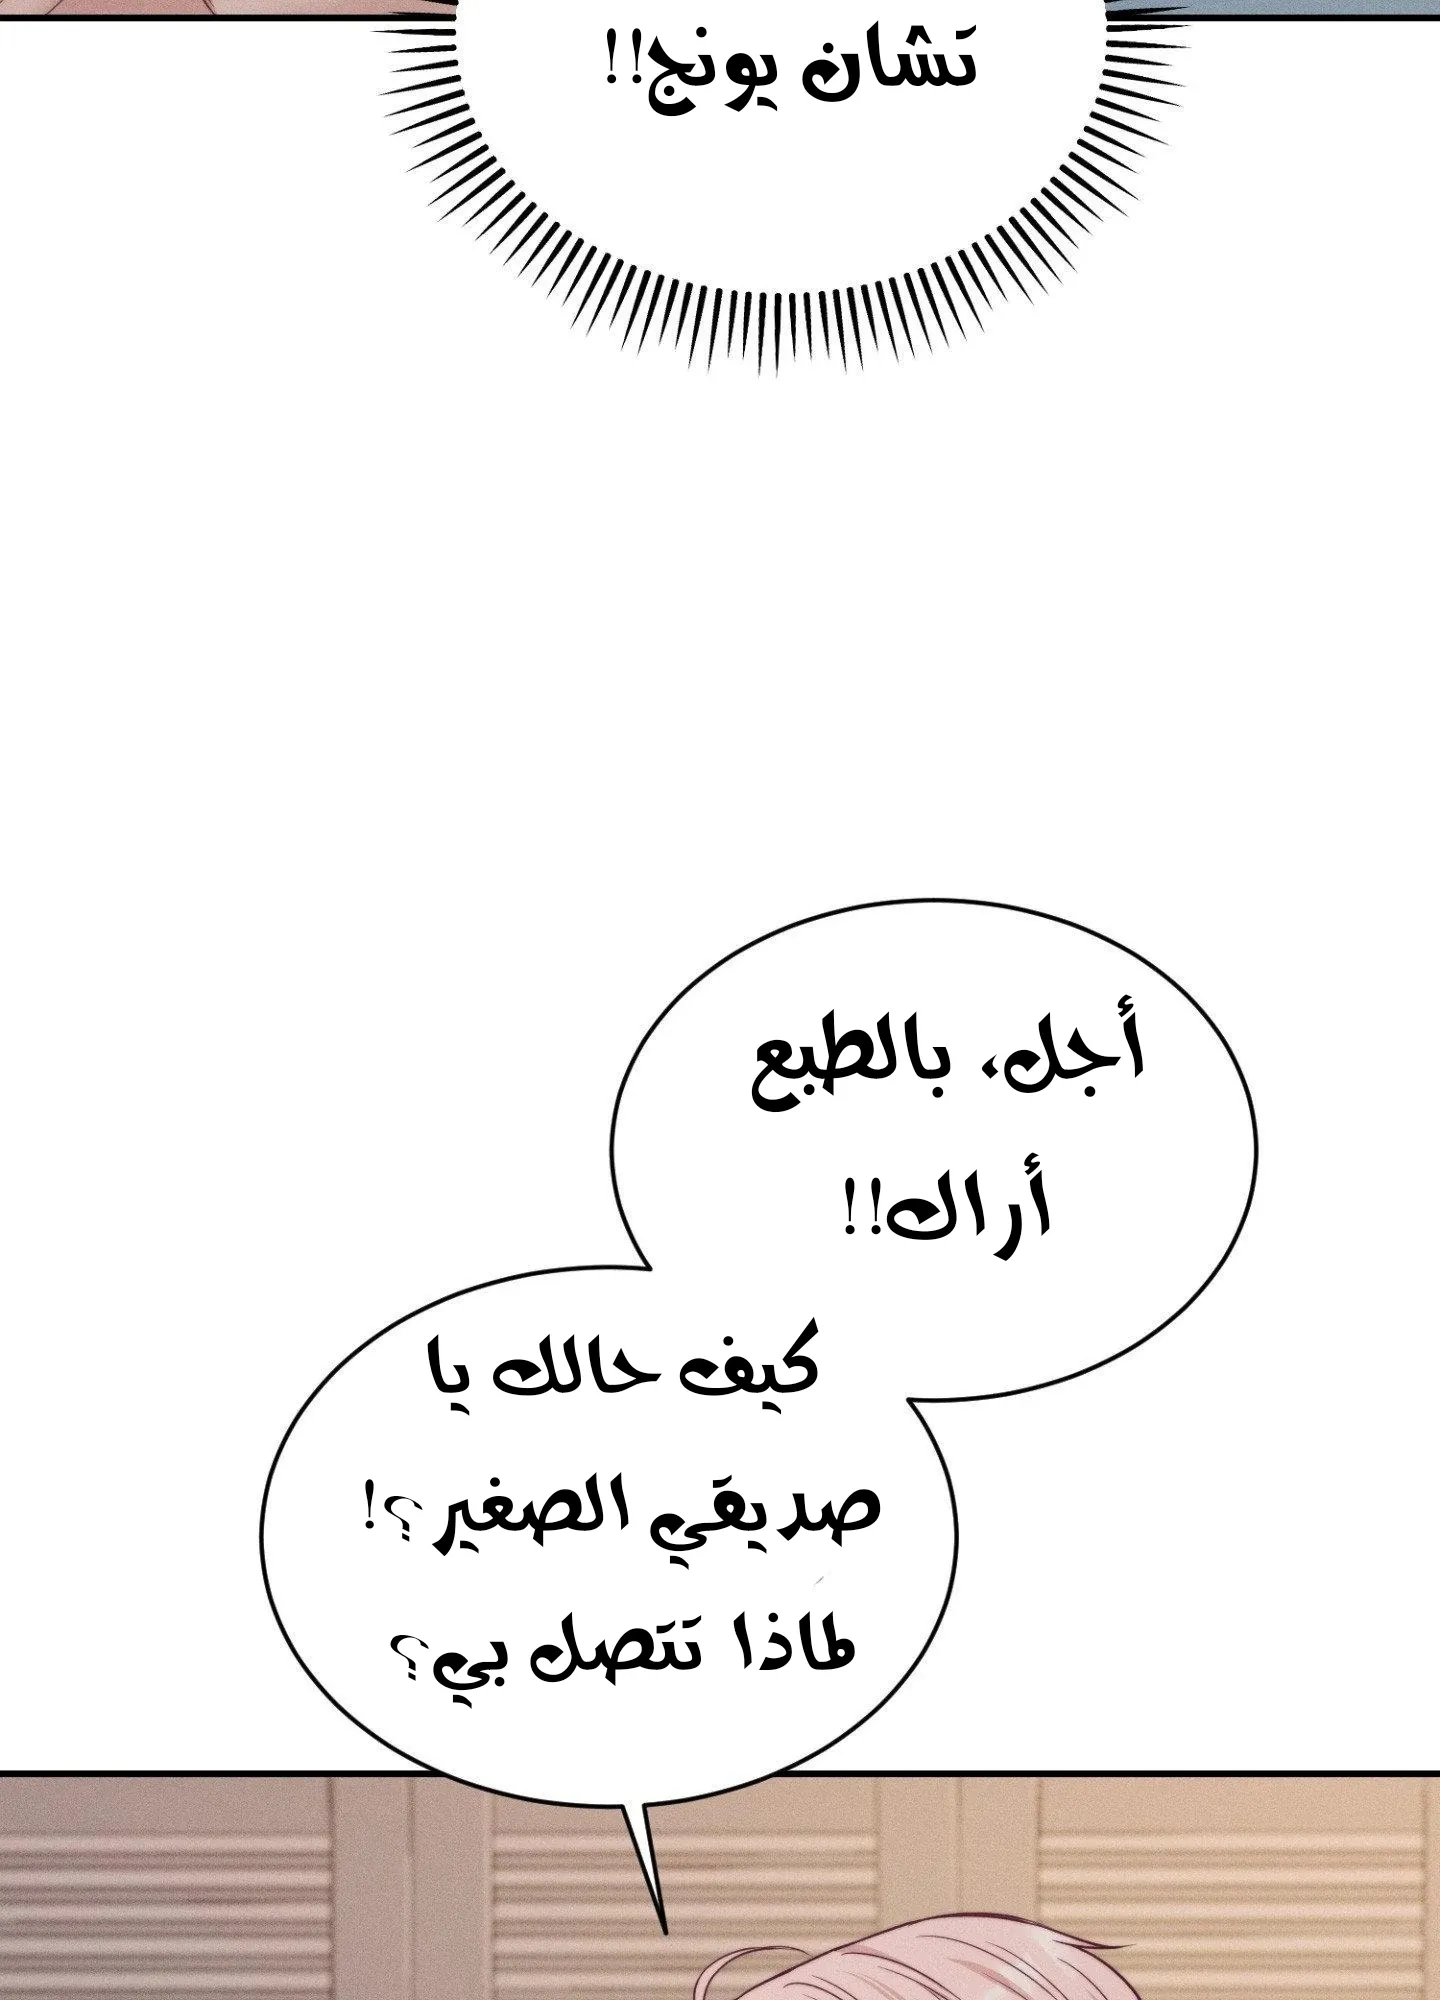 تشان يونج!!
أجل، بالطبع
أراك!!
كيف حالك يا
صديقي الصغير؟!
لماذا تتصل بي؟